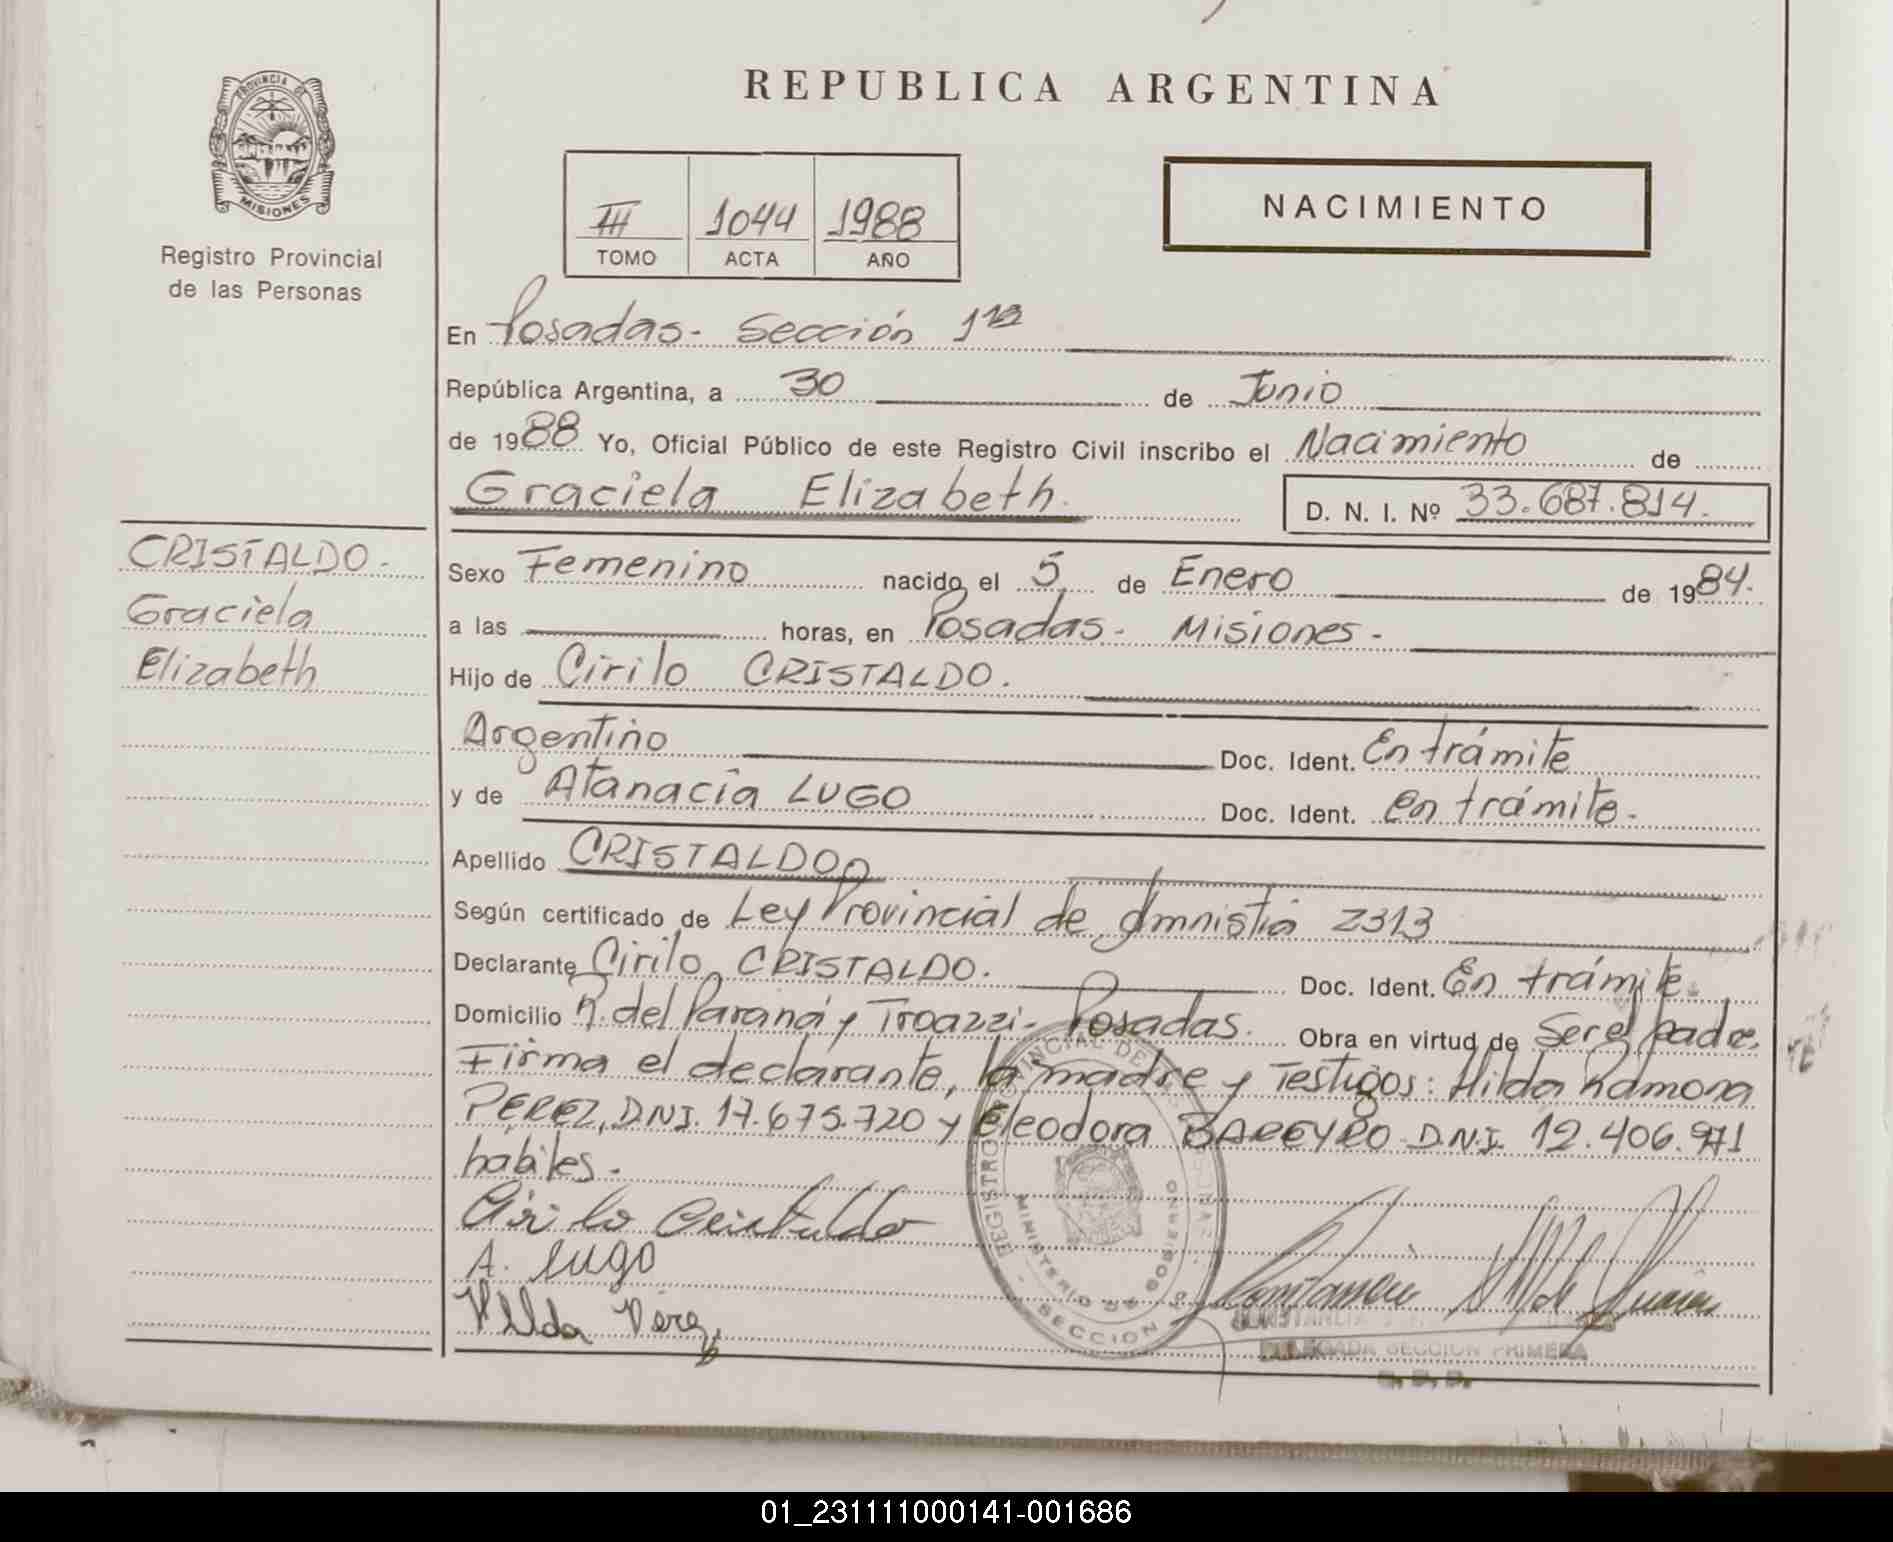 PROVINCIA DE
MISIONES
Registro Provincial
de las Personas
REPUBLICA ARGENTINA
III 1044 1988
TOMO ACTA AÑO
NACIMIENTO
En Posadas- Sección 1ra
República Argentina, a 30 de Junio
de 1988 Yo, Oficial Público de este Registro Civil inscribo el Nacimiento de
Graciela Elizabeth. D. N. I. Nº 33.687.814.
CRISTALDO-
Graciela
Elizabeth
Sexo Femenino nacido el 5 de Enero de 1984.
a las horas, en Posadas- Misiones-
Hijo de Cirilo CRISTALDO.
Argentino Doc. Ident. En trámite
y de Atanacia LUGO Doc. Ident. en trámite-
Apellido CRISTALDO
Según certificado de Ley Provincial de Amnistia 2313
Declarante Cirilo CRISTALDO. Doc. Ident. En trámite-
Domicilio R. del Paraná y Troazzi- Posadas. Obra en virtud de Ser el padre.
Firma el declarante, la madre y Testigos: Hilda Ramona
PEREZ, D.N.I. 17.675.720 y Eleodora BAREYRO D.N.I. 12.406.971
hábiles-
Cirilo Cristaldo
A. Lugo
Hilda Perez
REGISTRO PROVINCIAL DE
MINISTERIO DE GOBIERNO
SECCION
DELEGADA SECCION PRIMERA
01_231111000141-001686